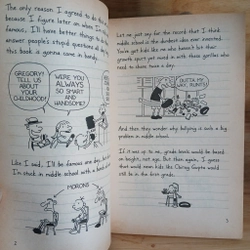 The only reason I agreed to do this at
because I figure later on when I'm
famous, I'll have better things to do
answer people's stupid questions all
this book is gonna come in handy.
GREGORY!
TELL US
ABOUT YOUR
CHILDHOOD!
WERE YOU
ALWAYS
SO SMART
AND
HANDSOME?
Like I said, I'll be famous one day, but
I'm stuck in middle school with a bunch
MORONS
2
Let me just say for the record that I think
middle school is the dumbest idea ever invented.
You got kids like me who haven't hit their
growth spurt yet mixed in with these gorillas who
need to shave twice a day.
OUTTA MY
WAY, RUNTS!
And then they wonder why bullying is such a big
problem in middle school.
If it was up to me, grade levels would be based
on height, not age. But then again, I guess
that would mean kids like Chirag Gupta would
still be in the first grade.
3